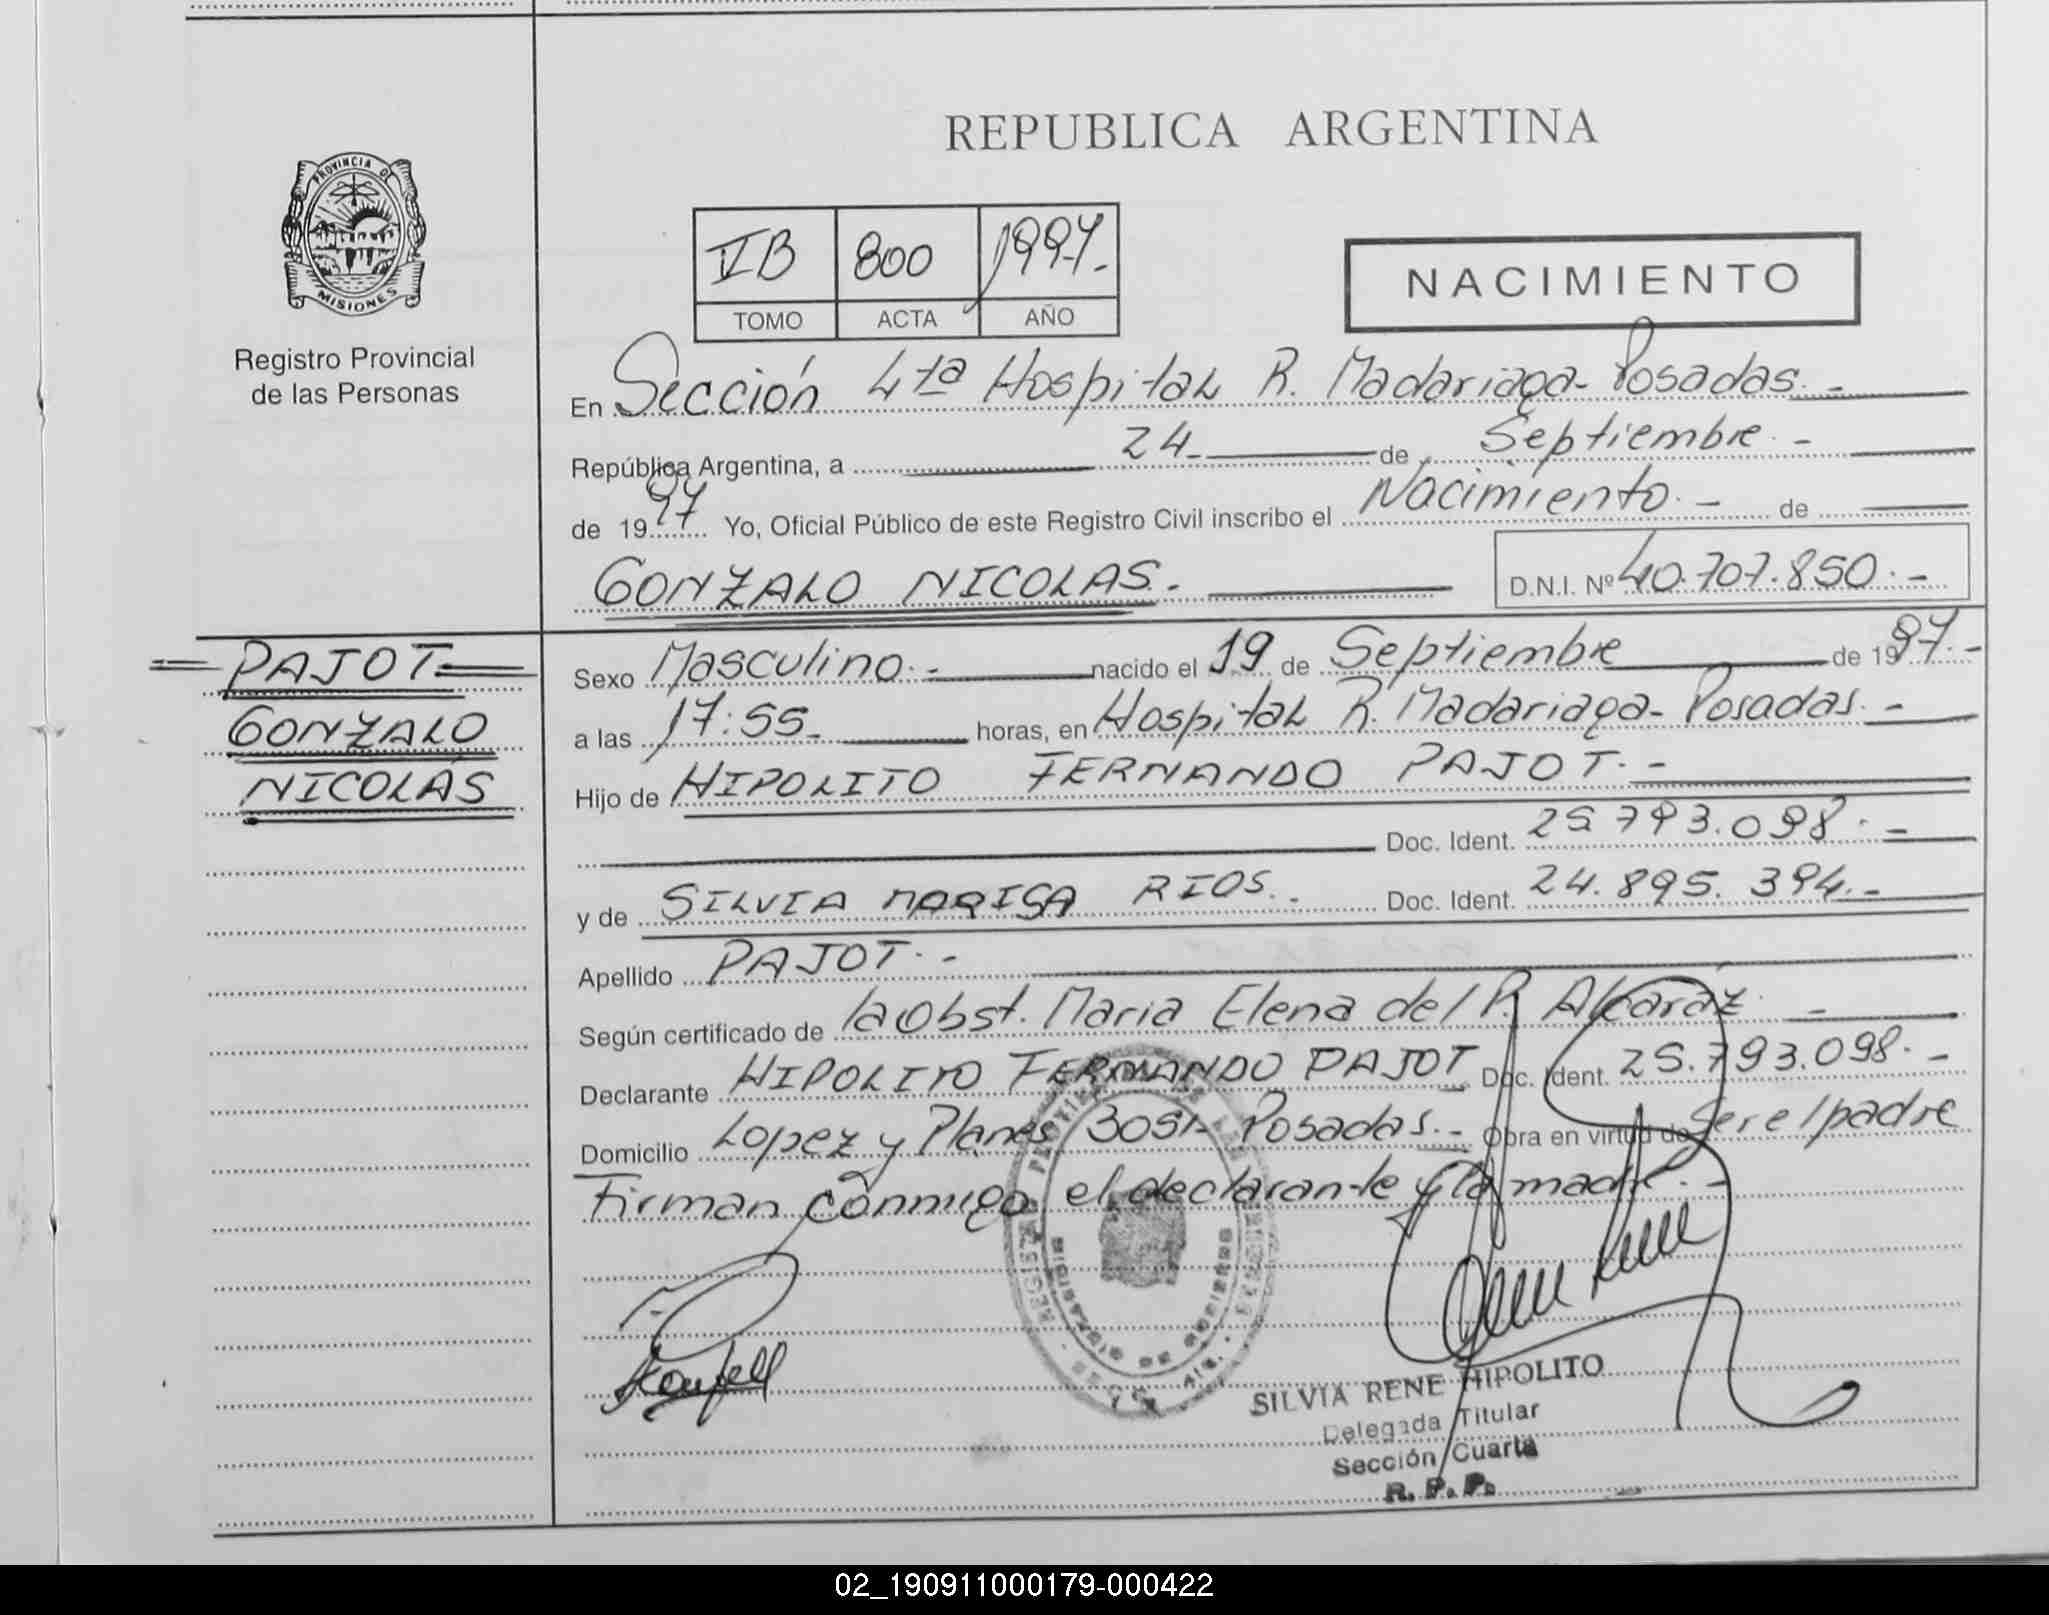 REPUBLICA ARGENTINA
PROVINCIA DE
MISIONES
Registro Provincial
de las Personas
VB 800 1997.-
TOMO ACTA AÑO
NACIMIENTO
En Sección 4ta Hospital R. Madariaga- Posadas.-
República Argentina, a 24.- de Septiembre.-
de 1997 Yo, Oficial Público de este Registro Civil inscribo el Nacimiento.- de
GONZALO NICOLAS.- D.N.I. Nº 40.707.850.-
PAJOT
GONZALO
NICOLÁS
Sexo Masculino.- nacido el 19 de Septiembre de 1997.-
a las 17:55.- horas, en Hospital R. Madariaga- Posadas.-
Hijo de HIPOLITO FERNANDO PAJOT.-
Doc. Ident. 25.793.098.-
y de SILVIA MARISA RIOS.- Doc. Ident. 24.895.394.-
Apellido PAJOT.-
Según certificado de la Obst. Maria Elena del R. Alcaraz.-
Declarante HIPOLITO FERNANDO PAJOT Doc. Ident. 25.793.098.-
Domicilio Lopez y Planes Posadas.- Obra en virtud de Ser el padre
Firman conmigo el declarante y la madre.-
SILVIA RENE HIPOLITO
Delegada Titular
Sección Cuarta
R. P. P.
02_190911000179-000422